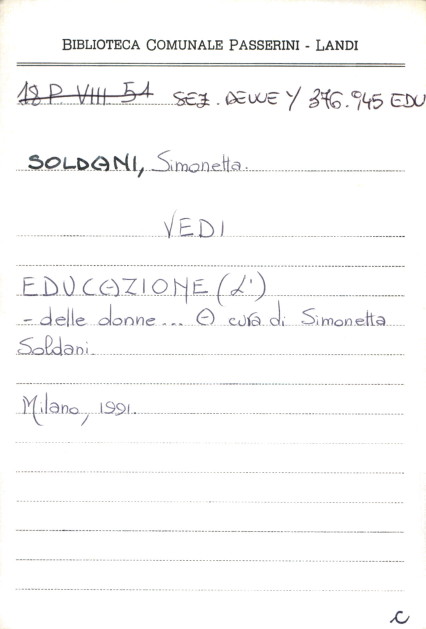 BIBLIOTECA COMUNALE PASSERINI - LANDI
18 P. VIII. 51 SEZ. DEWEY 376.945 EDU
SOLDANI, Simonetta.
VEDI
EDUCAZIONE (L')
- delle donne... A cura di Simonetta
Soldani.
Milano, 1991.
C